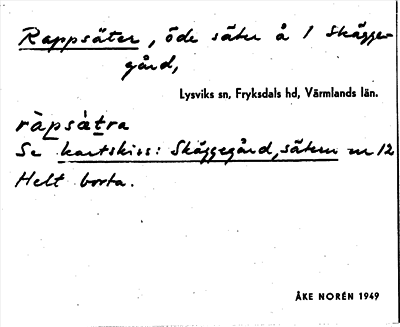 Rappsäter, öde säter å 1 Skägge-
gård,
Lysviks sn, Fryksdals hd, Värmlands län.
ràpsàtra
Se kartskiss: Skäggegård, sätern nr 12
Helt borta.
ÅKE NORÉN 1949